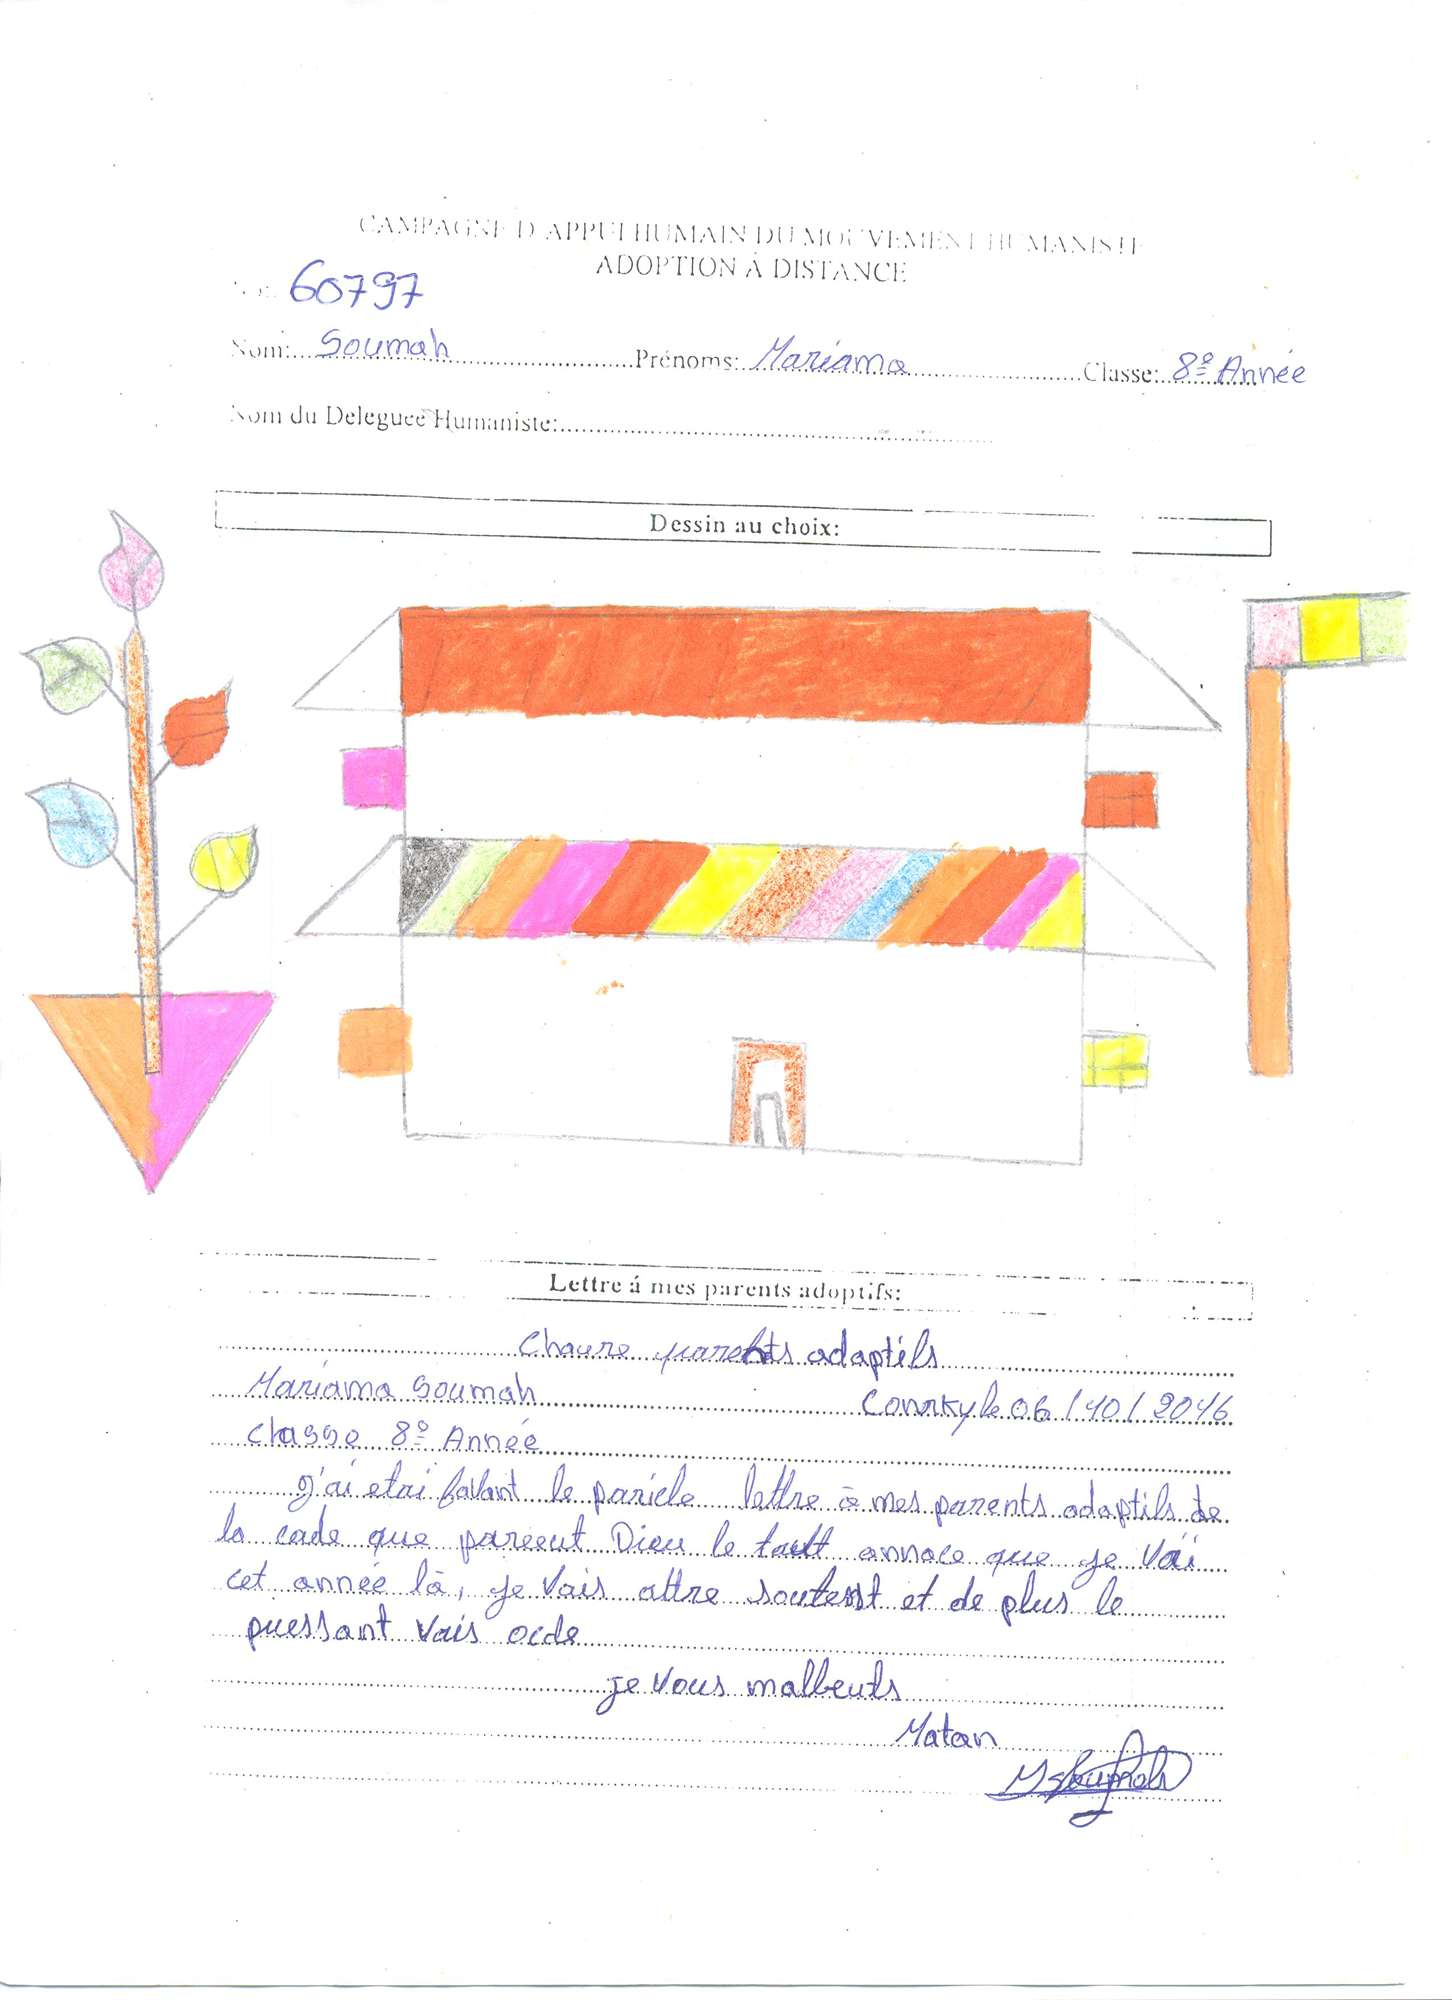 CAMPAGNE D'APPUI HUMAIN DU MOUVEMENT HUMANISTE
ADOPTION Á DISTANCE
60797
Nom: Soumah Prénoms: Mariama Classe: 8e Année
Nom du Deleguee Humaniste:
Dessin au choix:
Lettre á mes parents adoptifs:
Chaure parents adaptifs
Mariama Soumah Conrkyle 06/10/2016
Classe 8e Année
J'ai etai le lettre à mes parents adaptils de
la cade que pareent Dieu le tautt annace que je Vai
cet année là, je Vais attre soutenst et de plus le
puessant Vais ocde
je Vous malbeuts
Matan